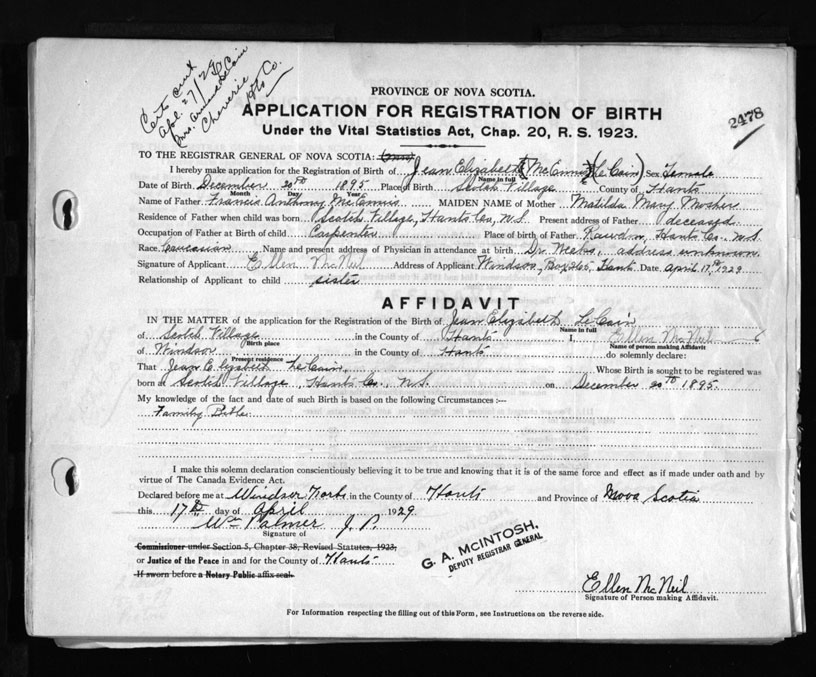 Certs sent
Apl. 27/29
Mrs. LeCain
Cheverie
Hts Co.
2478
PROVINCE OF NOVA SCOTIA.
APPLICATION FOR REGISTRATION OF BIRTH
Under the Vital Statistics Act, Chap. 20, R. S. 1923.
TO THE REGISTRAR GENERAL OF NOVA SCOTIA:
I hereby make application for the Registration of Birth of Jean Elizabeth (McCannis) (LeCain) Sex Female
Name in full
Date of Birth December 20th 1895 Place of Birth Scotch Village County of Hants
Month Day Year
Name of Father Francis Anthony McCannis MAIDEN NAME of Mother Matilda Mary Mosher
Residence of Father when child was born Scotch Village, Hants Co, N.S. Present address of Father deceased
Occupation of Father at Birth of child Carpenter Place of birth of Father Rawdon, Hants Co. N.S.
Race Caucasian Name and present address of Physician in attendance at birth Dr. Weeks, address unknown
Signature of Applicant Ellen McNeil Address of Applicant Windsor, Box 365, Hants Date April 17th 1929
Relationship of Applicant to child sister
AFFIDAVIT
IN THE MATTER of the application for the Registration of the Birth of Jean Elizabeth LeCain
Name in full
of Scotch Village in the County of Hants I Ellen McNeil
Birth place Name of person making Affidavit
of Windsor in the County of Hants do solemnly declare:
Present residence
That Jean Elizabeth LeCain, Whose Birth is sought to be registered was
born at Scotch Village Hants Co., N.S. on December 20th 1895.
My knowledge of the fact and date of such Birth is based on the following Circumstances :—
Family Bible
I make this solemn declaration conscientiously believing it to be true and knowing that it is of the same force and effect as if made under oath and by
virtue of The Canada Evidence Act.
Declared before me at Windsor Forks in the County of Hants and Province of Nova Scotia
this 17th day of April 1929
Wm Palmer J. P.
Signature of
Commissioner under Section 5, Chapter 38, Revised Statutes, 1923,
or Justice of the Peace in and for the County of Hants
If sworn before a Notary Public affix seal.
G. A. McINTOSH,
DEPUTY REGISTRAR GENERAL
Ellen McNeil
Signature of Person making Affidavit.
For Information respecting the filling out of this Form, see Instructions on the reverse side.